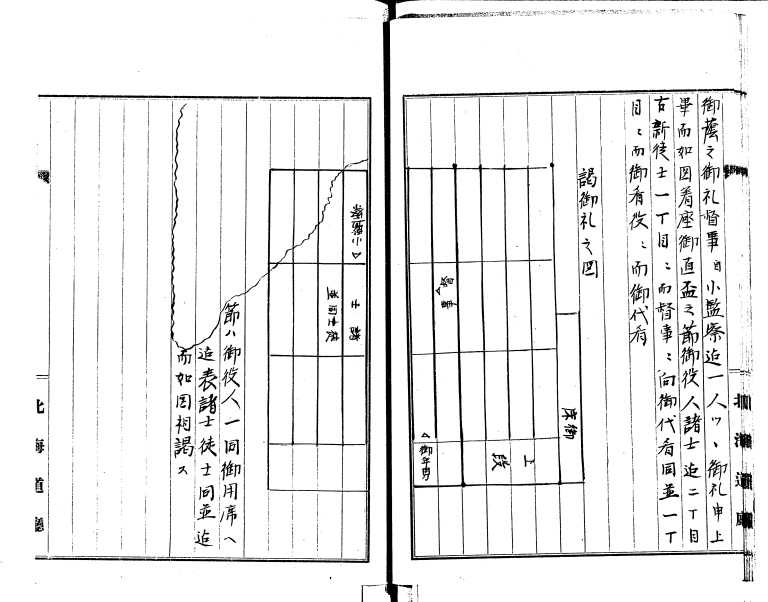 御蔭之御礼督事ゟ小監察迠一人ツヽ御礼申上
畢而如図着座御直盃之節御役人諸士迠二丁目
古新徒士一丁目ニ而督事ニ向御代肴同並一丁
目ニ而御肴役ニ而御代肴
謁御礼之図
御床
上段
督事
御年男
小監察
諸士
並同士徒
節ハ御役人一同御用席ヘ
迠表諸士徒士同並迠
而如図相謁ス
北海道廳
北海道廳